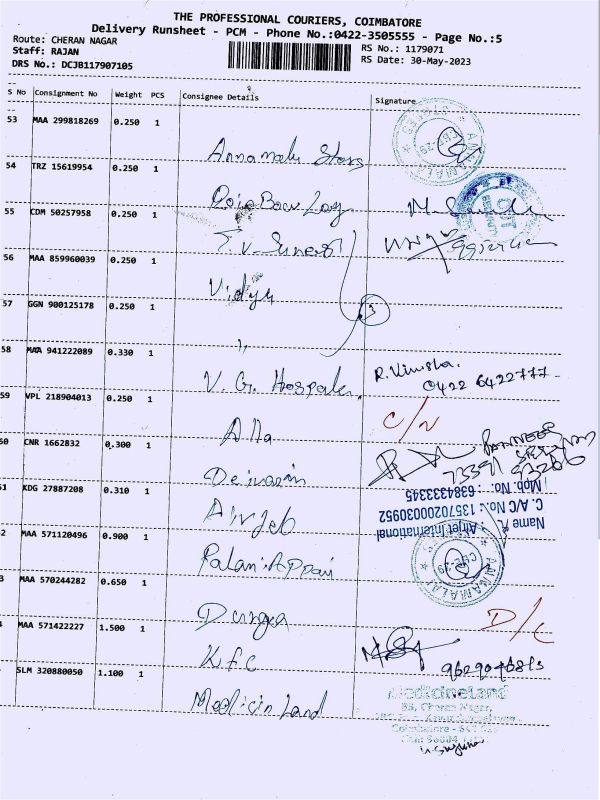 THE PROFESSIONAL COURIERS, COIMBATORE
Delivery Runsheet - PCM - Phone No.:0422-3505555 - Page No.:5
Route: CHERAN NAGAR
RS No.: 1179071
Staff: RAJAN
RS Date: 30-May-2023
DRS No.: DCJB117907105
S No Consignment No Weight PCS Consignee Details Signature
53 MAA 299818269 0.250 1
Annamalai Stores
54 TRZ 15619954 0.250 1
55 CDM 50257958 0.250 1
56 MAA 859960039 0.250 1
Vidya
57 GGN 900125178 0.250 1
3
"
58 MAA 941222089 0.330 1
V. G. Hospital
0422 6422777
59 VPL 218904013 0.250 1
C/N
60 CNR 1662832 0.300 1
61 KDG 27887208 0.310 1
Airjet
Name : Airjet International
C. A/C No. : 13570200030952
Mob. No. : 6384333345
2 MAA 571120496 0.900 1
Palaniappa
3 MAA 570244282 0.650 1
Durga
D/C
MAA 571422227 1.500 1
KFC
SLM 320880050 1.100 1
Medicin Land
MedicineLand